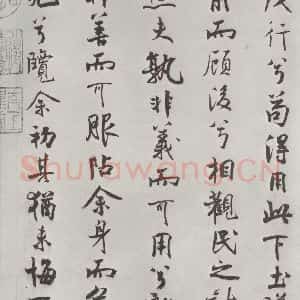 行兮苟得用此下土
前而顧後兮相觀民之計
夫孰非義而可用兮孰
非善而可服阽余身而危
死兮覽余初其猶未悔
Shufawang.CN